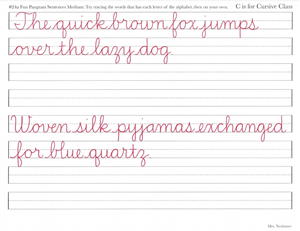 #2 ba Fun Pangram Sentences Medium: Try tracing the words that has each letter of the alphabet, then on your own. C is for Cursive Class
The quick brown fox jumps
over the lazy dog.
Woven silk pyjamas exchanged
for blue quartz.